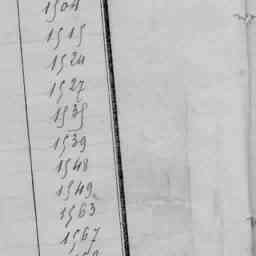 1504
1515
1524
1527
1535
1539
1548
1549
1563
1567